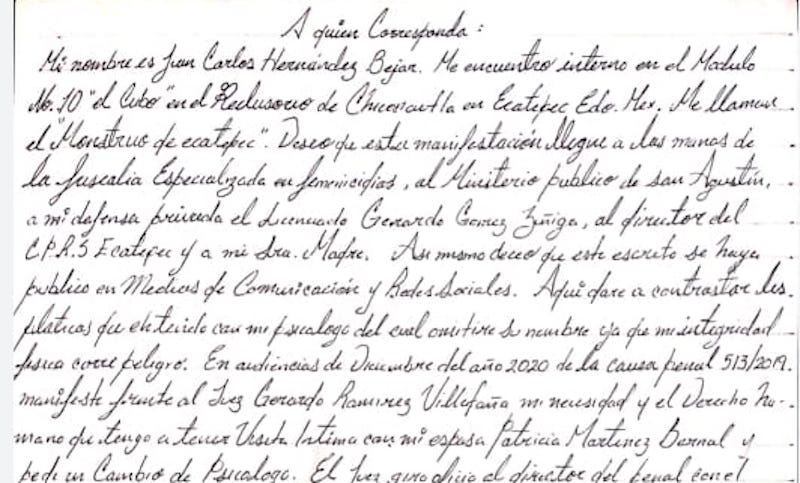 A quien Corresponda:
Mi nombre es Juan Carlos Hernández Bejar. Me encuentro interno en el Modulo
No. 10 "el Cubo" en el Reclusorio de Chiconautla en Ecatepec Edo. Mex. Me llaman
el "Monstruo de ecatepec". Deseo que esta manifestación llegue a las manos de
la fiscalia Especializada en feminicidios, al Ministerio publico de san Agustín,
a mi defensa privada el Licenciado Gerardo Gomez Zuñiga, al director del
C.P.R.S Ecatepec y a mi Sra. Madre. Asi mismo deceo que este escrito se haga
publico en Medios de Comunicación y Redes Sociales. Aqui dare a contrastar las
platicas que e tenido con mi psicologo del cual omitire su nombre ya que mi integridad
fisica corre peligro. En audiencias de Diciembre del año 2020 de la causa penal 513/2019.
manifeste frente al Juez Gerardo Ramirez Villafaña mi necesidad y el Derecho hu-
mano que tengo a tener Visita Intima con mi esposa Patricia Martinez Bernal y
pedi un Cambio de Psicologo. El Juez giro oficio al director del penal con el